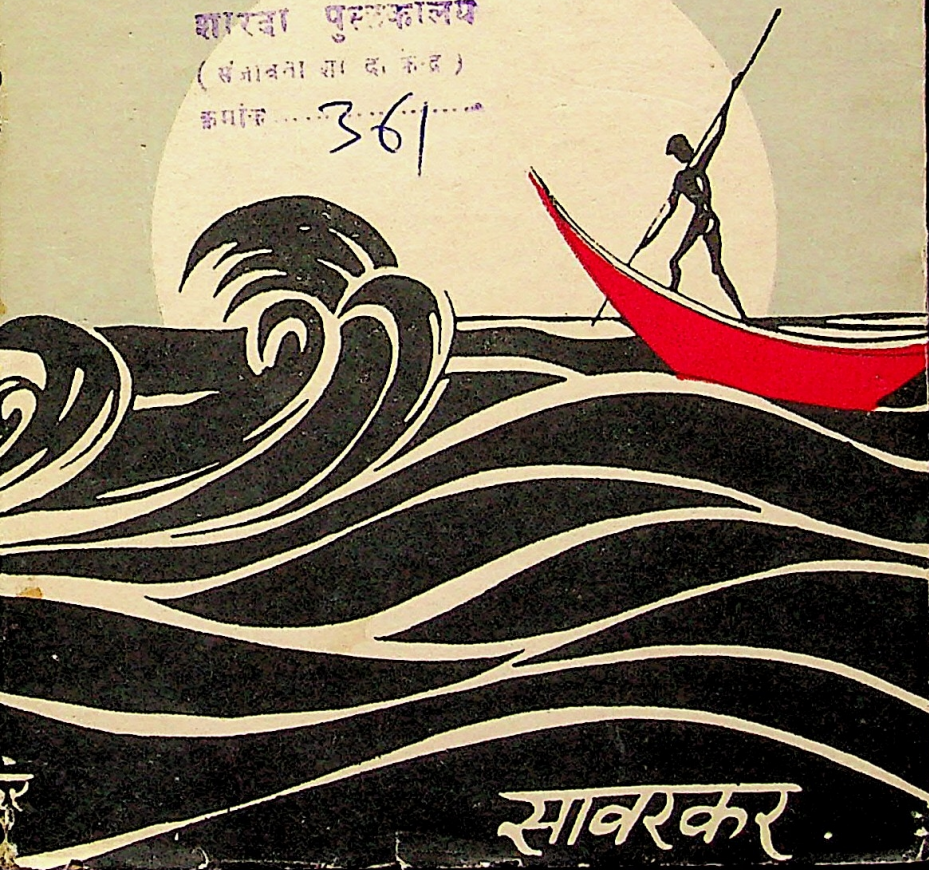 शारदा पुस्तकालय
(संजीवनी शा द केंद्र)
क्रमांक .................. 361
सावरकर